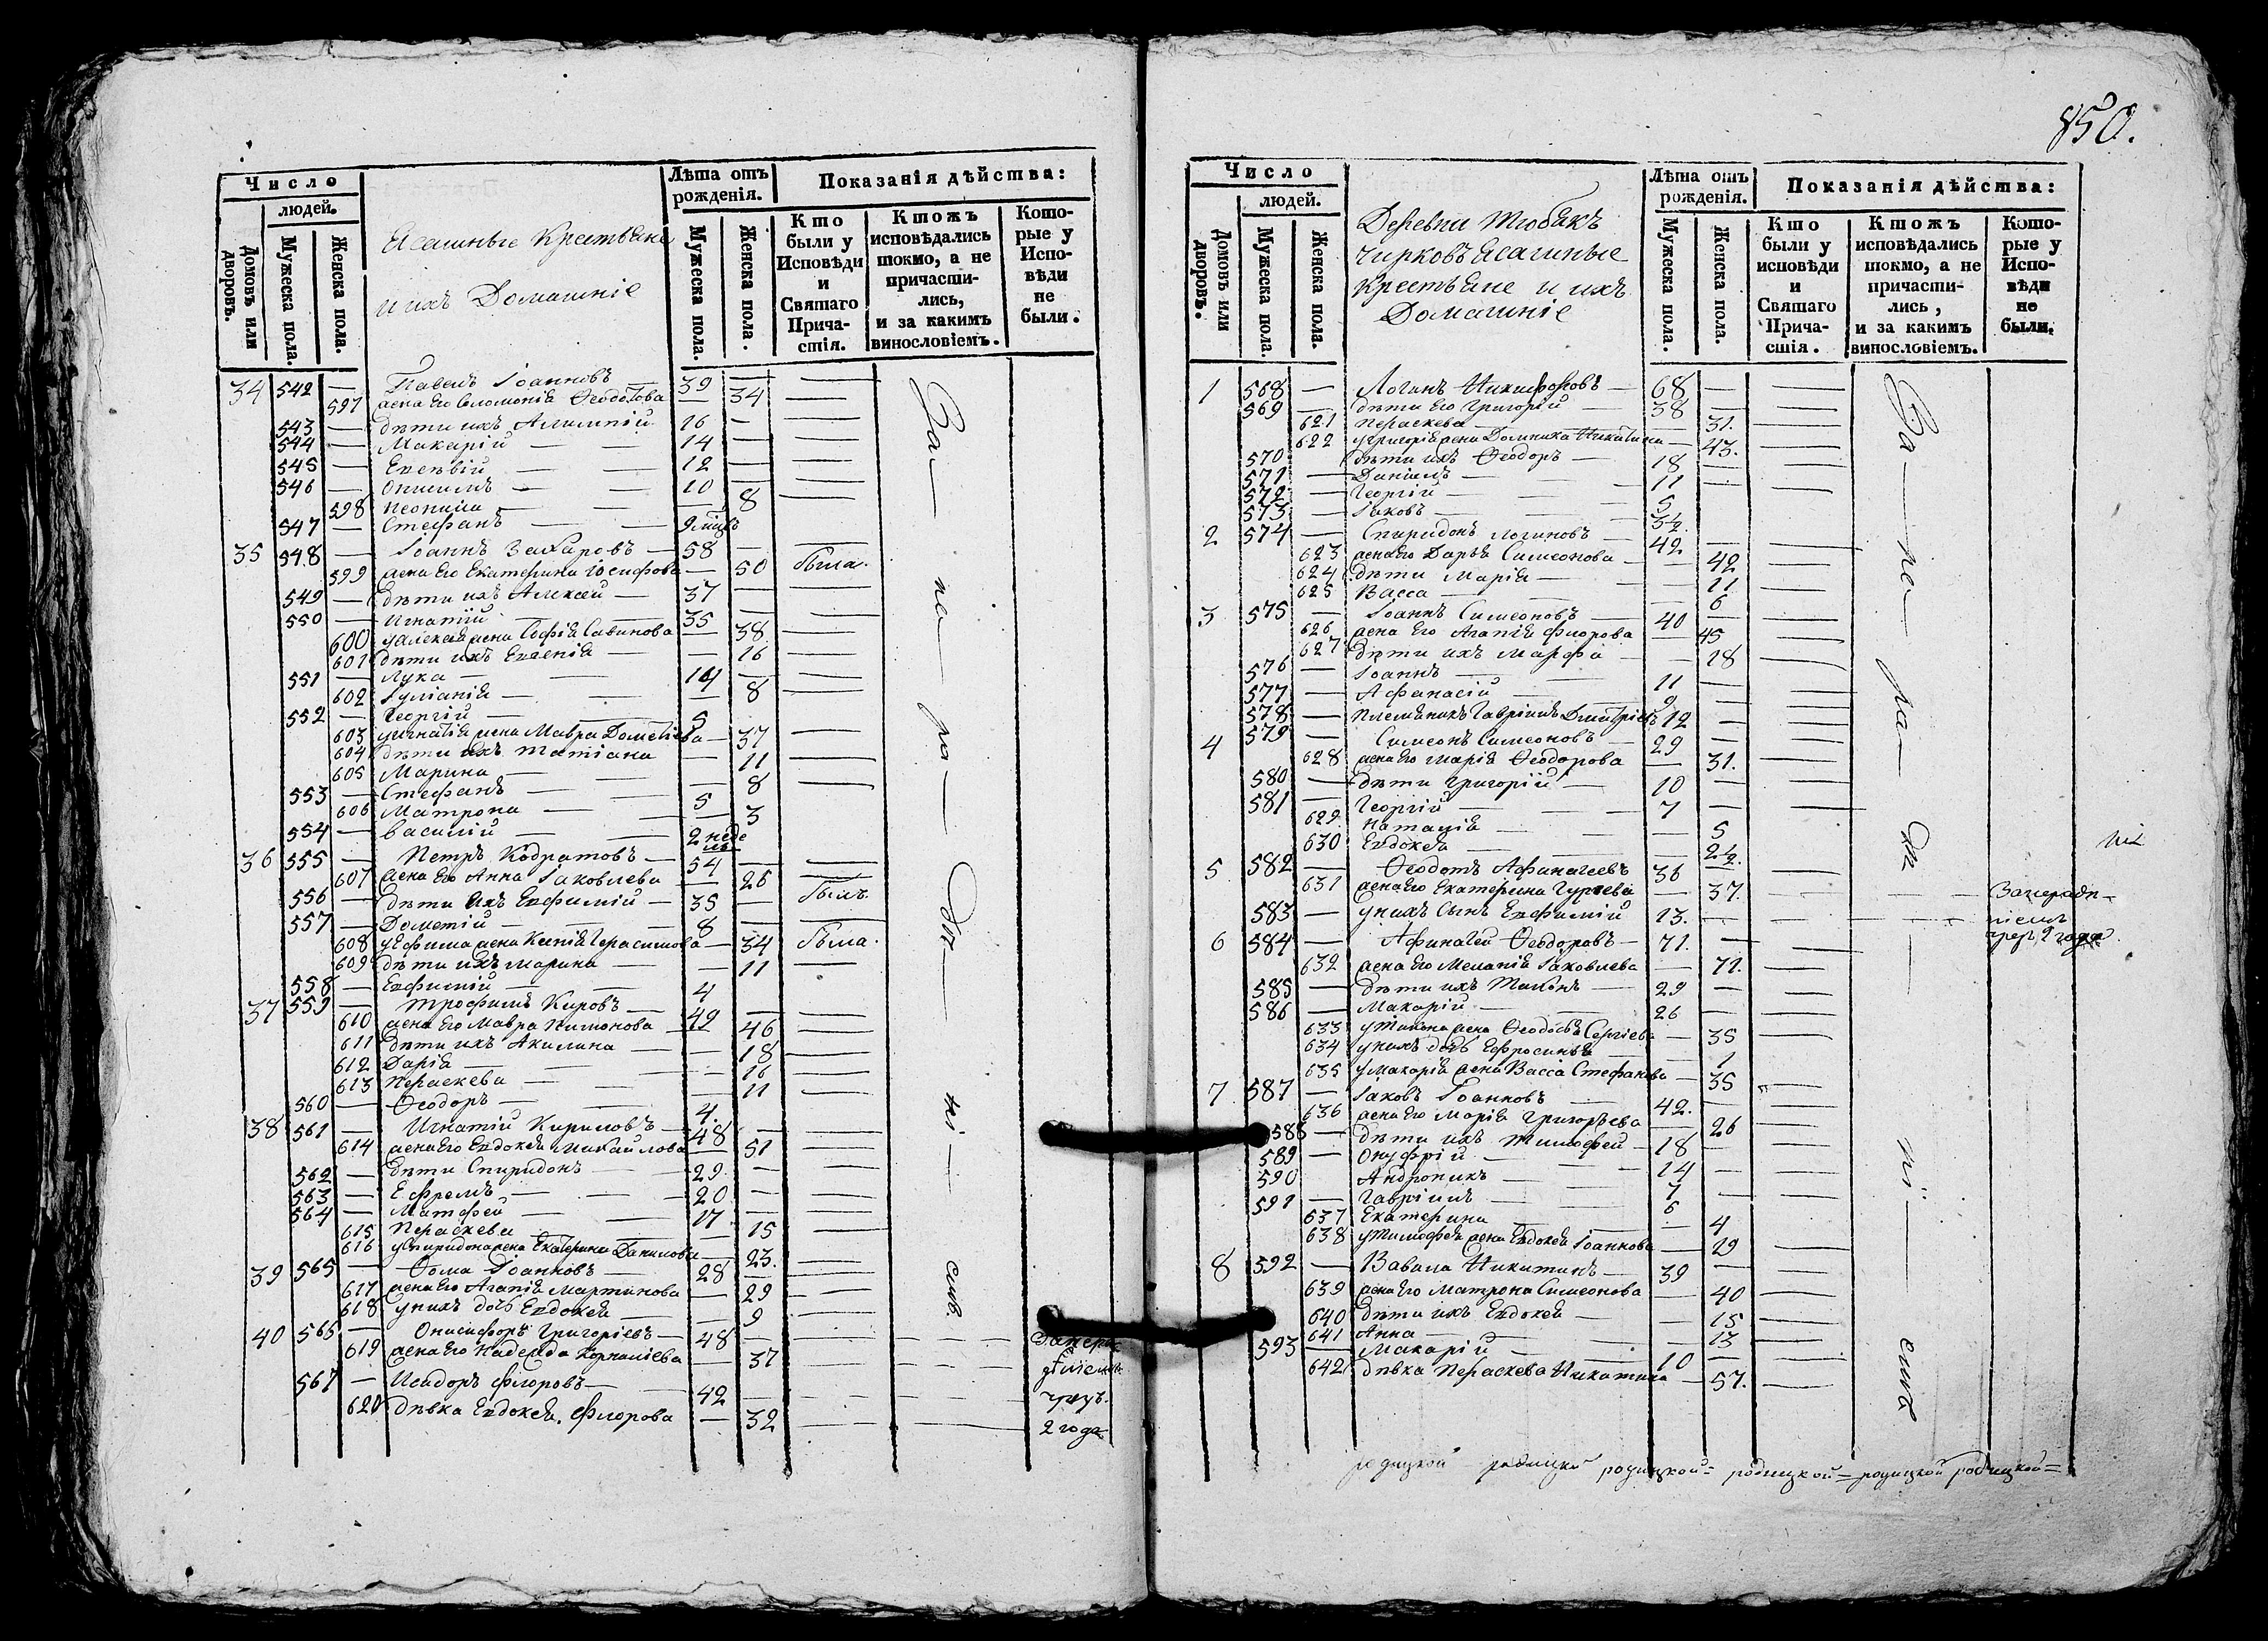 850.
Число
Лѣта отъ рожденія.
Показанія дѣйства:
людей.
Домовъ или дворовъ.
Мужеска пола.
Женска пола.
Ясашные Крестьяне
и ихъ Домашніе
Мужеска пола.
Женска пола.
Кто были у Исповѣди и Святаго Причастія.
Ктожъ исповѣдались токмо, а не причастились, и за какимъ винословіемъ.
Которые у Исповѣди не были.
34 542 — Павелъ Іоанновъ — 39 —
597 жена его Соломонія Ѳеодотова — 34
543 — дѣти ихъ Алимпій 16 —
544 — Макарій — 14 —
545 — Евсевій — 12 —
546 — Онисимъ — 10 —
598 Неонила — 8
547 — Стефанъ — 9 мцъ
35 548 — Іоаннъ Захаровъ — 58 —
599 жена его Екатерина Іосифова — 50 была.
549 — дѣти ихъ Алексей — 37 —
550 — Игнатій — 35 —
600 у Алексея жена Софія Савинова — 38
601 дѣти ихъ Евгенія — 16
551 — Лука — 14 —
602 Іуліанія — 8
552 — Георгій — 5
603 у Игнатія жена Мавра Дометіева — 37
604 дѣти ихъ Татіана — 11
605 Марина — 8
553 — Стефанъ — 5
606 Матрона — 3
554 — Василій — 2 неде ли
36 555 — Петръ Кодратовъ — 54 —
607 жена его Анна Іаковлева — 26
556 — дѣти ихъ Евфимій — 35 — былъ.
557 — Дометій — 8 —
608 у Ефима жена Ксенія Герасимова — 34 была.
609 дѣти ихъ Марина — 11
558 — Евфимій — 4
37 559 — Трофимъ Кировъ — 49 —
610 жена его Мавра Пимонова — 46
611 дѣти ихъ Акилина — 18
612 Дарія — 16
613 Параскева — 11
560 — Ѳеодоръ — 4.
38 561 — Игнатій Кириловъ — 48 —
614 жена его Евдокея Михайлова — 51
562 — дѣти Спиридонъ — 29 —
563 — Ефремъ — 20 —
564 — Матфей — 17 —
615 Параскева — 15
616 у Спиридона жена Екатерина Данилова — 23.
39 565 — Ѳома Іоанновъ — 28 —
617 жена его Агапія Мартинова — 29
618 у нихъ дочь Евдокея — 9
40 566 — Онисифоръ Григоріевъ — 48 —
619 жена его Надежда Корниліева — 37
567 — Исидоръ Флоровъ — 42 —
620 дѣвка Евдокея Флорова — 32
2 года
За — пе — ра — дѣ — ні — емъ
Число
Лѣта отъ рожденія.
Показанія дѣйства:
людей.
Домовъ или дворовъ.
Мужеска пола.
Женска пола.
Деревни Тюбякъ
Чирковъ Ясашные
Крестьяне и ихъ
Домашніе
Мужеска пола.
Женска пола.
Кто были у исповѣди и Святаго Причастія.
Ктожъ исповѣдались токмо, а не причастились, и за какимъ винословіемъ.
Которые у Исповѣди не были.
1 568 — Логинъ Никифоровъ — 68 —
569 — дѣти его Григорій — 38 —
621 Параскева — 31.
622 у Григорія жена Домника Никитина — 43.
570 дѣти ихъ Ѳеодоръ — 18 —
571 — Даніилъ — 11 —
572 — Георгій — 5
573 — Іаковъ — 3½.
2 574 — Спиридонъ Логиновъ — 42 —
623 жена его Дарья Симеонова — 42
624 дѣти Марія — 11
625 Васса — 6
3 575 — Іоаннъ Симеоновъ — 40 —
626 жена его Агапія Флорова — 45
627 дѣти ихъ Марфа — 18
576 — Іоаннъ — 11 —
577 — Афанасій — 9 —
578 — племяникъ Гавріилъ Дмитріевъ 12 —
4 579 — Симеонъ Симеоновъ — 29 —
628 жена его Марія Ѳеодорова — 31.
580 — дѣти Григорій — 10 —
581 — Георгій — 7 —
629 Наталія — 5
630 Евдокея — 2½.
5 582 — Ѳеодотъ Афанасеевъ 36 —
631 жена его Екатерина Гурьева — 37.
583 — у нихъ сынъ Евфимій 13. —
6 584 — Афанасей Ѳеодоровъ — 71. —
632 жена его Меланія Іаковлева — 71.
585 — дѣти ихъ — 29 —
586 — Макарій — 26 —
633 жена Ѳеодосья Сергіева — 35
634 у нихъ дочь Ефросинья — 1
635 у Макарія жена Васса Стефанова — 35
7 587 — Іаковъ Іоанновъ — 42. —
636 жена его Марія Григорьева — 26
588 — дѣти ихъ Тимофей — 18 —
589 — Онуфрій — 14 —
590 Андроникъ — 7 —
591 — Гавріилъ — 6
637 Екатерина — 4
638 у Тимофея жена Евдокея Іоаннова — 29
8 592 — Вавила Никитинъ — 39 —
639 жена его Матрона Симеонова — 40
640 дѣти ихъ Евдокея — 15
641 Анна — 13
593 — Макарій — 10 —
642 дѣвка Параскева Никитина — 57.
За — пе — ра — дѣ — ні — емъ
За нерадѣ-
ніемъ
чрез 2 года
родицкой родицкой родицкой= родицкой= родицкой родицкой=